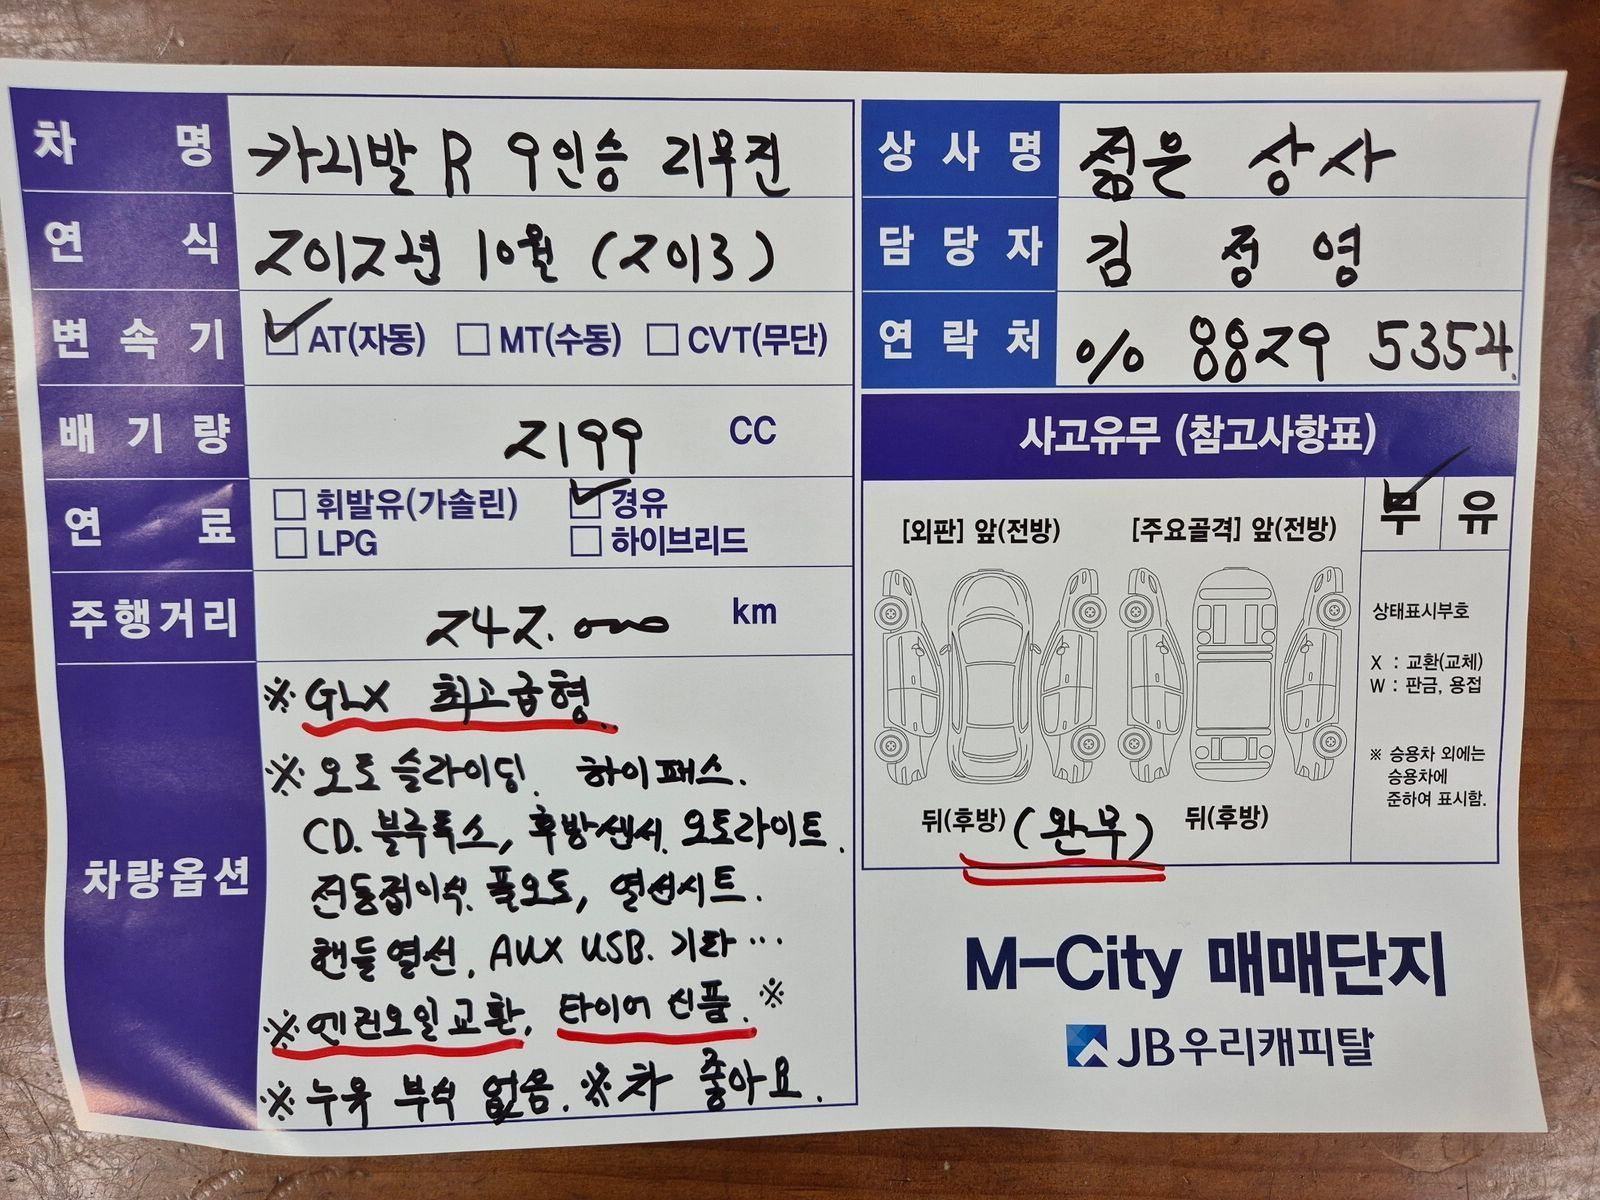 차 명 카니발 R 9인승 리무진
연 식 2012년 10월 (2013)
변 속 기 AT(자동) MT(수동) CVT(무단)
배 기 량 2199 CC
연 료 휘발유(가솔린) 경유
LPG 하이브리드
주행거리 242.000 km
차량옵션
※ GLX 최고급형.
※ 오토슬라이딩. 하이패스.
CD. 블루투스, 후방센서. 오토라이트.
전동접이식. 풀오토, 열선시트.
핸들열선, AUX USB. 기타 …
※ 엔진오일교환, 타이어 신품. ※
※ 누유 부식 없음. ※ 차 좋아요.
상 사 명 젊은 상사
담 당 자 김 정 영
연 락 처 010 8829 5354.
사고유무 (참고사항표)
[외판] 앞(전방) [주요골격] 앞(전방) 무 유
상태표시부호
X : 교환(교체)
W : 판금, 용접
※ 승용차 외에는
승용차에
준하여 표시함.
뒤(후방) (완무) 뒤(후방)
M-City 매매단지
JB우리캐피탈